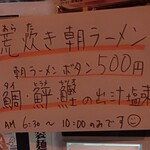 あら
荒炊き朝ラーメン
朝ラーメンボタン500円
鯛 鮃 鰹の出汁塩
AM 6:30 ~ 10:00のみです